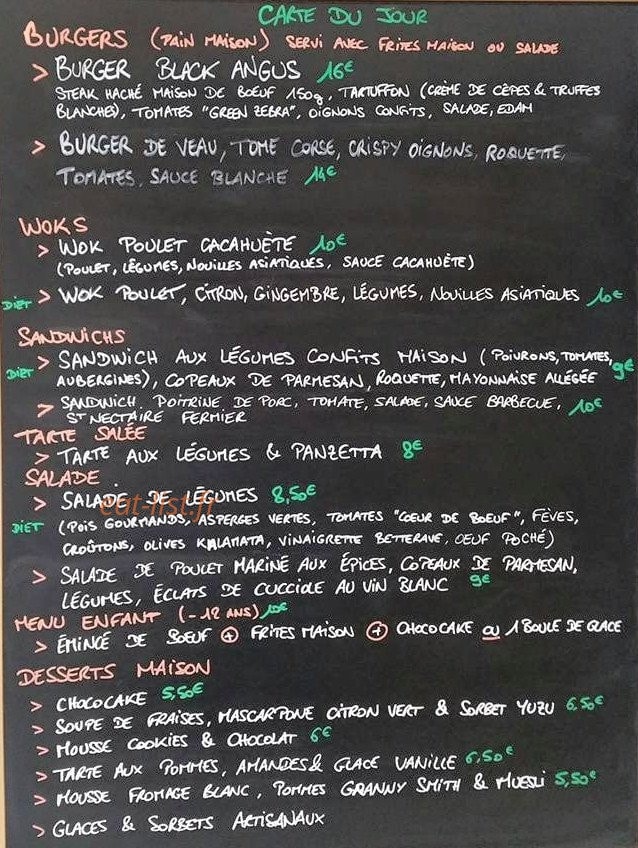 CARTE DU JOUR
BURGERS (PAIN MAISON) SERVI AVEC FRITES MAISON OU SALADE
> BURGER BLACK ANGUS 16€
STEAK HACHÉ MAISON DE BOEUF 150g, TARTUFFON (CRÈME DE CÈPES & TRUFFES
BLANCHES), TOMATES "GREEN ZEBRA", OIGNONS CONFITS, SALADE, EDAM
> BURGER DE VEAU, TOME CORSE, CRISPY OIGNONS, ROQUETTE,
TOMATES, SAUCE BLANCHE 14€
WOKS
> WOK POULET CACAHUÈTE 10€
(POULET, LÉGUMES, NOUILLES ASIATIQUES, SAUCE CACAHUÈTE)
DIET > WOK POULET, CITRON, GINGEMBRE, LÉGUMES, NOUILLES ASIATIQUES 10€
SANDWICHS
> SANDWICH AUX LÉGUMES CONFITS MAISON (POIVRONS, TOMATES, 9€
DIET AUBERGINES), COPEAUX DE PARMESAN, ROQUETTE, MAYONNAISE ALLÉGÉE
> SANDWICH, POITRINE DE PORC, TOMATE, SALADE, SAUCE BARBECUE, 10€
ST NECTAIRE FERMIER
TARTE SALÉE
> TARTE AUX LÉGUMES & PANZETTA 8€
SALADE
> SALADE DE LÉGUMES 8,50€
eat-list.fr
DIET (POIS GOURMANDS, ASPERGES VERTES, TOMATES "COEUR DE BOEUF", FÈVES,
CROÛTONS, OLIVES KALAMATA, VINAIGRETTE BETTERAVE, OEUF POCHÉ)
> SALADE DE POULET MARINÉ AUX ÉPICES, COPEAUX DE PARMESAN,
LÉGUMES, ÉCLATS DE CUCCIOLE AU VIN BLANC 9€
MENU ENFANT (-12 ANS) 10€
> ÉMINCÉ DE BOEUF + FRITES MAISON + CHOCOCAKE OU 1 BOULE DE GLACE
DESSERTS MAISON
> CHOCOCAKE 5,50€
> SOUPE DE FRAISES, MASCARPONE CITRON VERT & SORBET YUZU 6,50€
> MOUSSE COOKIES & CHOCOLAT 6€
> TARTE AUX POMMES, AMANDES & GLACE VANILLE 6,50€
> MOUSSE FROMAGE BLANC, POMMES GRANNY SMITH & MUESLI 5,50€
> GLACES & SORBETS ARTISANAUX